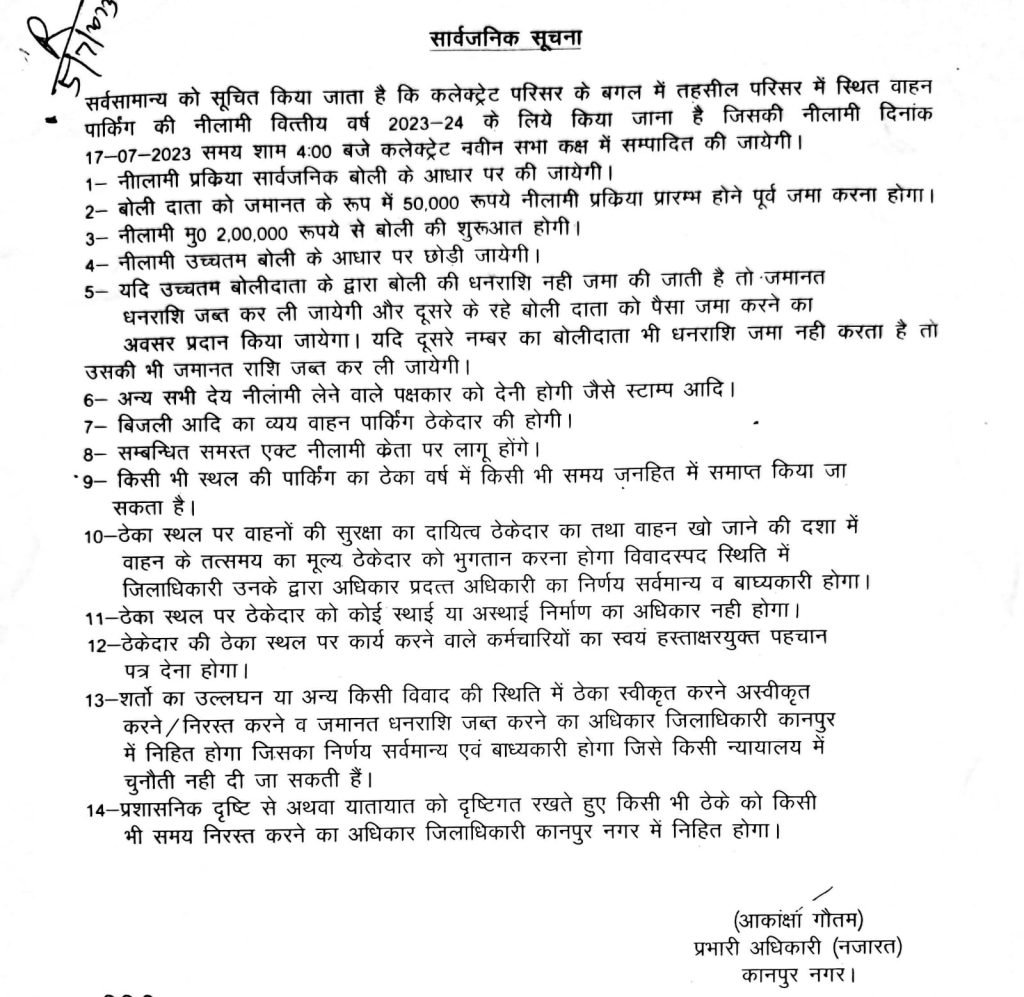 सार्वजनिक सूचना
सर्वसामान्य को सूचित किया जाता है कि कलेक्ट्रेट परिसर के बगल में तहसील परिसर में स्थित वाहन
पार्किंग की नीलामी वित्तीय वर्ष 2023-24 के लिये किया जाना है जिसकी नीलामी दिनांक
17-07-2023 समय शाम 4:00 बजे कलेक्ट्रेट नवीन सभा कक्ष में सम्पादित की जायेगी।
1- नीालामी प्रकिया सार्वजनिक बोली के आधार पर की जायेगी।
2- बोली दाता को जमानत के रूप में 50,000 रूपये नीलामी प्रकिया प्रारम्भ होने पूर्व जमा करना होगा।
3- नीलामी मु0 2,00,000 रूपये से बोली की शुरूआत होगी।
4- नीलामी उच्चतम बोली के आधार पर छोड़ी जायेगी।
5- यदि उच्चतम बोलीदाता के द्वारा बोली की धनराशि नही जमा की जाती है तो जमानत
धनराशि जब्त कर ली जायेगी और दूसरे के रहे बोली दाता को पैसा जमा करने का
अवसर प्रदान किया जायेगा। यदि दूसरे नम्बर का बोलीदाता भी धनराशि जमा नही करता है तो
उसकी भी जमानत राशि जब्त कर ली जायेगी।
6- अन्य सभी देय नीलांमी लेने वाले पक्षकार को देनी होगी जैसे स्टाम्प आदि।
7- बिजली आदि का व्यय वाहन पार्किंग ठेकेदार की होगी।
8- सम्बन्धित समस्त एक्ट नीलामी क्रेता पर लागू होंगे।
9- किसी भी स्थल की पार्किंग का ठेका वर्ष में किसी भी समय जनहित में समाप्त किया जा
सकता है।
10-ठेका स्थल पर वाहनों की सुरक्षा का दायित्व ठेकेदार का तथा वाहन खो जाने की दशा में
वाहन के तत्समय का मूल्य ठेकेदार को भुगतान करना होगा विवादस्पद स्थिति में
जिलाधिकारी उनके द्वारा अधिकार प्रदत्त अधिकारी का निर्णय सर्वमान्य व बाघ्यकारी होगा।
11-ठेका स्थल पर ठेकेदार को कोई स्थाई या अस्थाई निर्माण का अधिकार नही होगा।
12-ठेकेदार की ठेका स्थल पर कार्य करने वाले कर्मचारियों का स्वयं हस्ताक्षरयुक्त पहचान
पत्र देना होगा।
13-शर्तो का उल्लघन या अन्य किसी विवाद की स्थिति में ठेका स्वीकृत करने अस्वीकृत
करने/निरस्त करने व जमानत धनराशि जब्त करने का अधिकार जिलाधिकारी कानपुर
में निहित होगा जिसका निर्णय सर्वमान्य एवं बाध्यकारी होगा जिसे किसी न्यायालय में
चुनौती नही दी जा सकती हैं।
14-प्रशासनिक दृष्टि से अथवा यातायात को दृष्टिगत रखते हुए किसी भी ठेके को किसी
भी समय निरस्त करने का अधिकार जिलाधिकारी कानपुर नगर में निहित होगा।
(आकांक्षा गौतम)
प्रभारी अधिकारी (नजारत)
कानपुर नगर।